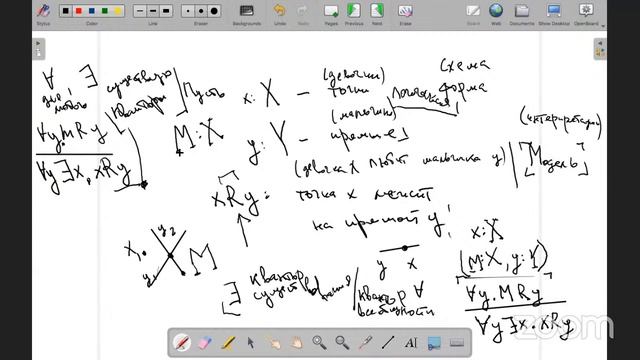 Stylus
Color
Line
Eraser
Backgrounds
Undo
Pages
Previous
Next
Erase
Board
Web
Documents
Show Desktop
OpenBoard
∀ ∃
Пусть
x: X — (девочки) точки
схема
форма
M: X
y: Y — (мальчики) прямые
(интерпретация)
∀y. M R y
∀y ∃x. xRy
(девочка x любит мальчика y)
[Модель]
xRy: точка x лежит
на прямой y
x₁ y₂ M y₁
y x
x: X
(M: X, y: Y)
∀y. M R y
∀y ∃x. xRy
∃ квантор существования
квантор ∀ всеобщности
zoom